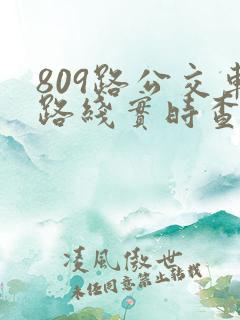 809路公交車
路綫實時查
凌風傲世
未经同意禁止转载